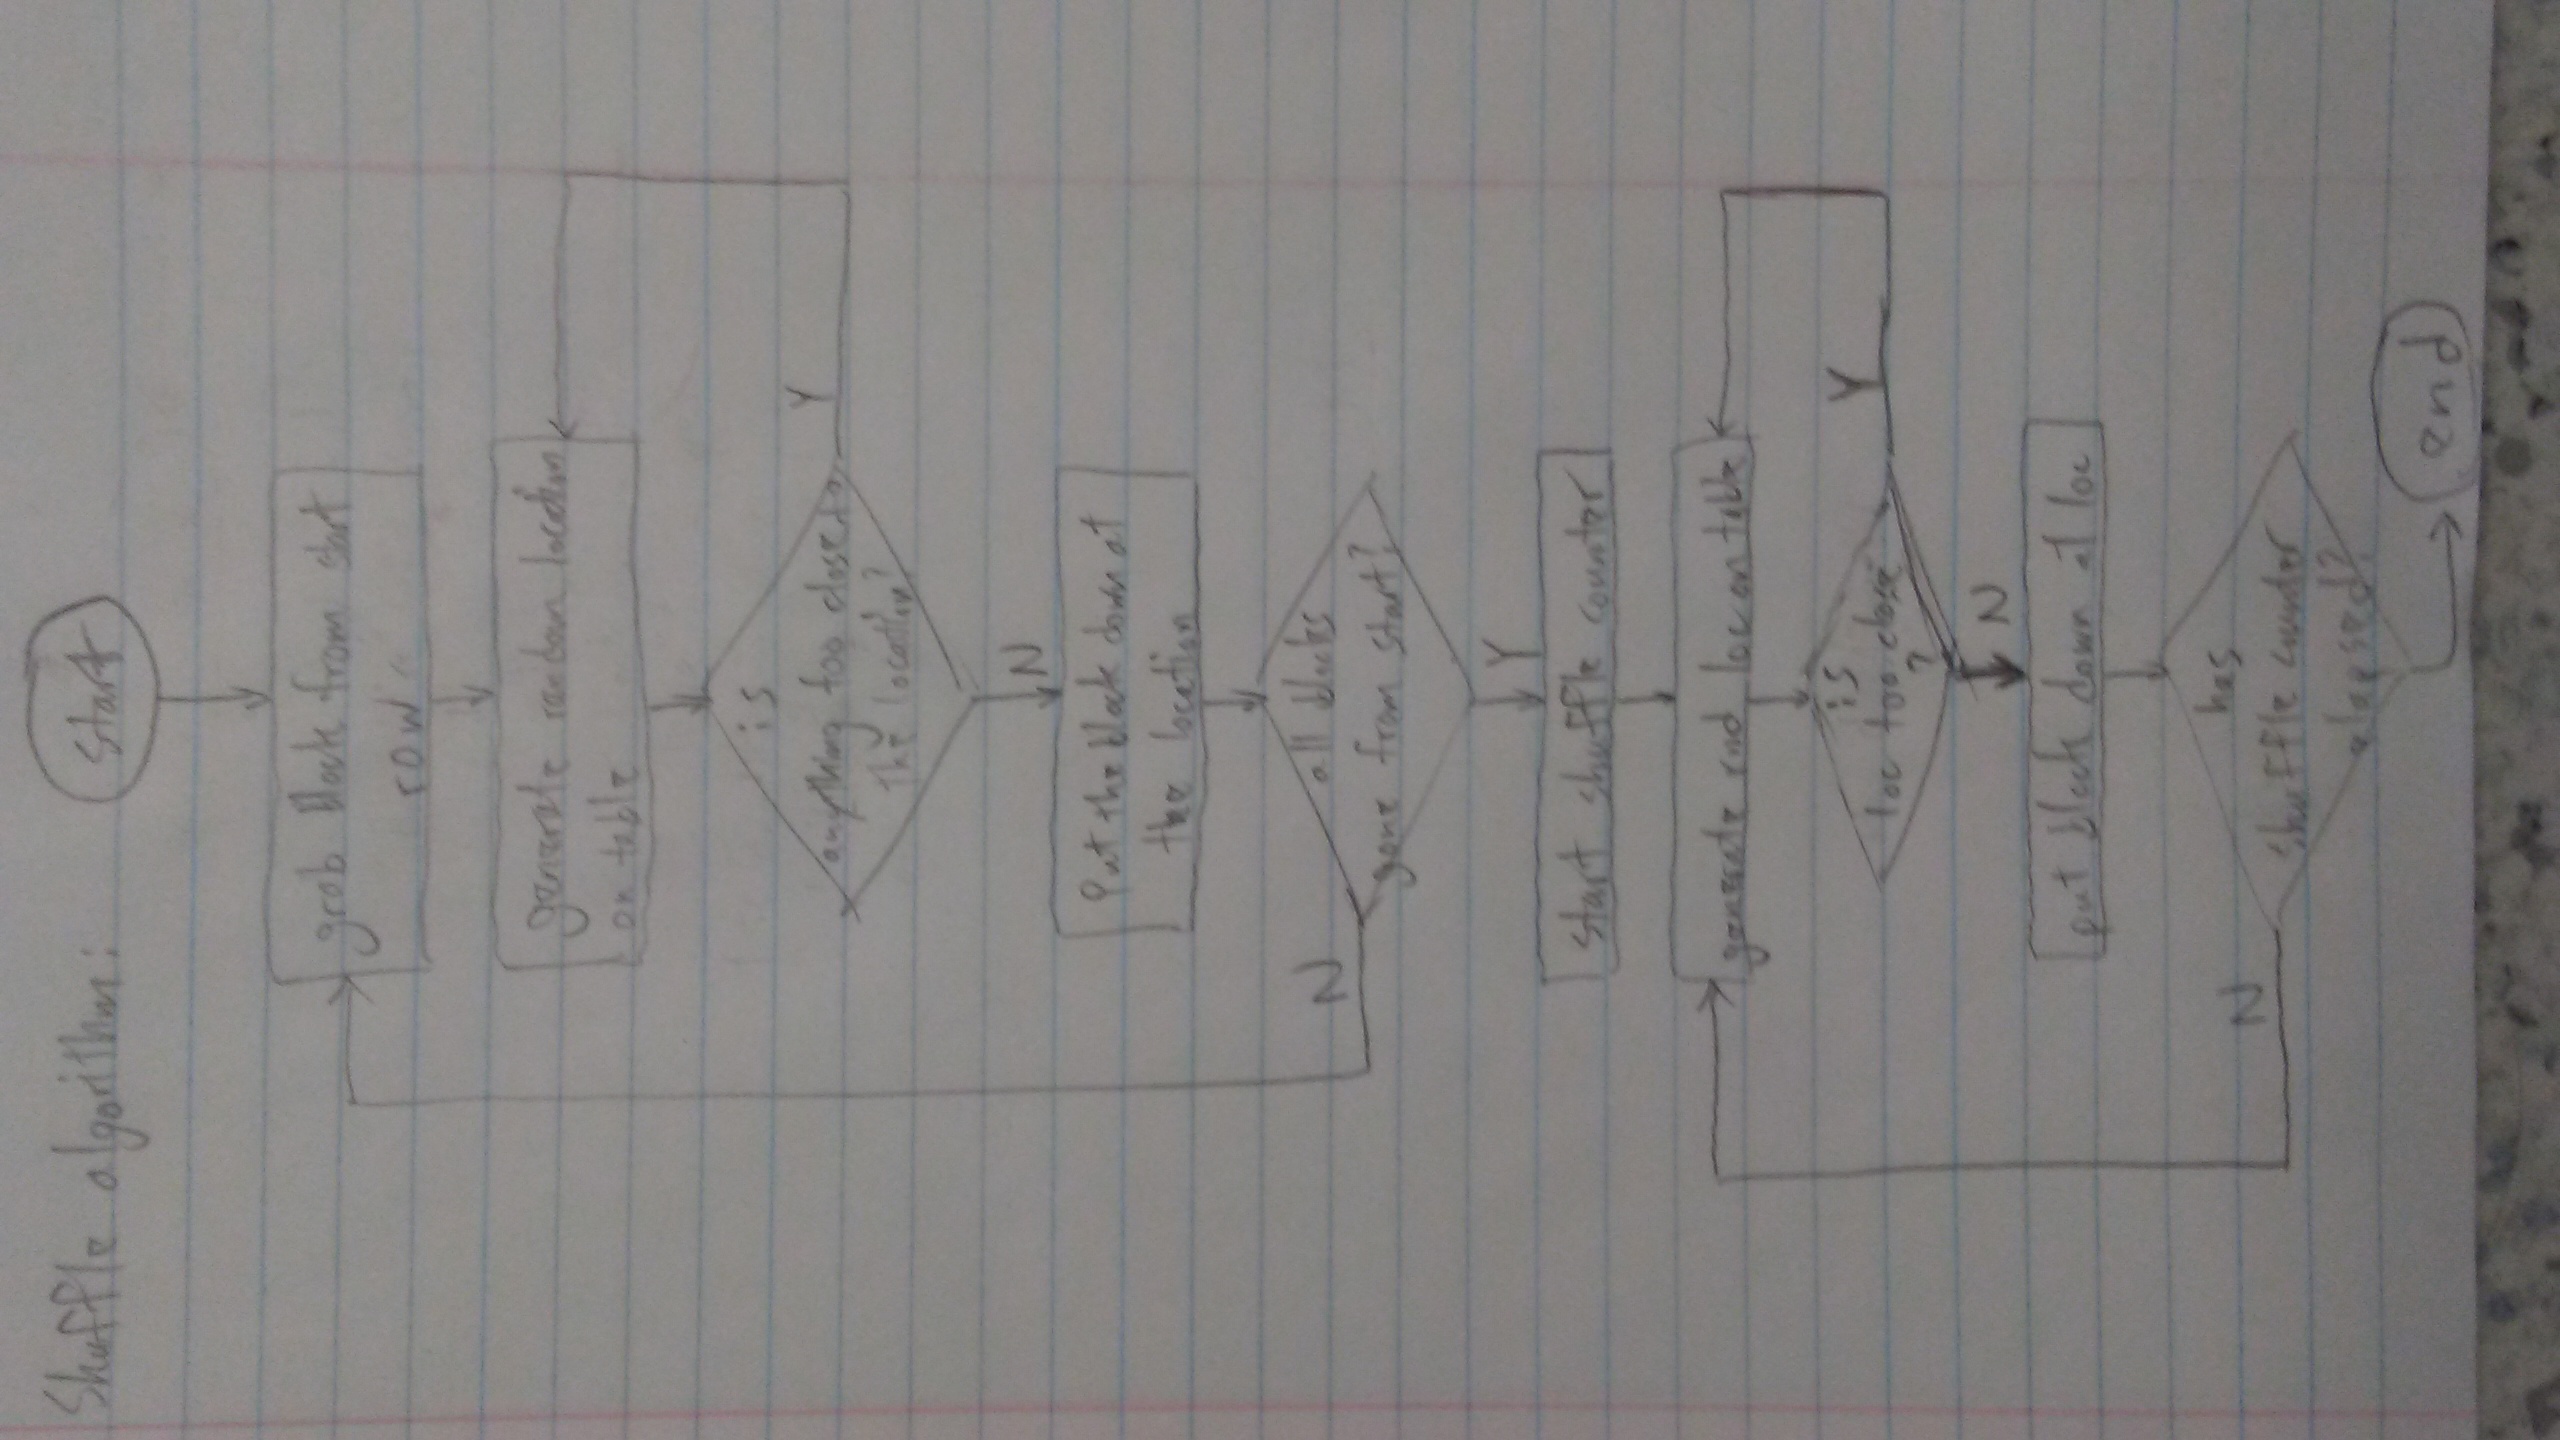 Shuffle algorithm:
start
grab block from start
row
generate random location
on table
is
anything too close to
the location?
Y
N
Put the block down at
the location
all blocks
gone from start?
N
Y
start shuffle counter
generate rnd loc on table
is
loc too close
?
Y
N
put block down at loc
has
shuffle counter
elapsed?
N
end